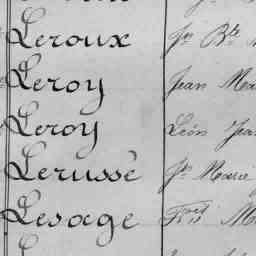 Leroux Jn Bte
Leroy Jean Mar
Leroy Léon Jean
Lerussé Jn Marie
Lesage Fçois M